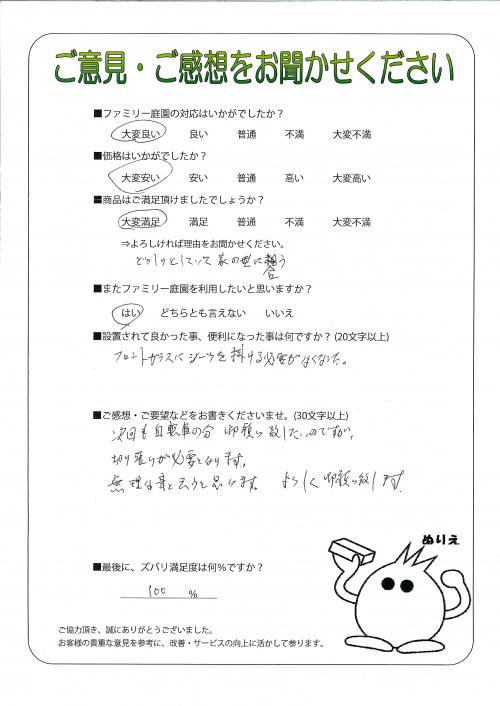 ご意見・ご感想をお聞かせください
■ファミリー庭園の対応はいかがでしたか？
大変良い 良い 普通 不満 大変不満
■価格はいかがでしたか？
大変安い 安い 普通 高い 大変高い
■商品はご満足頂けましたでしょうか？
大変満足 満足 普通 不満 大変不満
⇒よろしければ理由をお聞かせください。
どっしりとしていて家の型に合う
■またファミリー庭園を利用したいと思いますか？
はい どちらとも言えない いいえ
■設置されて良かった事、便利になった事は何ですか？(20文字以上)
フロントガラスにシーツを掛ける必要がなくなった。
■ご感想・ご要望などをお書きくださいませ。(30文字以上)
次回も自転車の分 御願い致したいのですが、
切り張りが必要となります。
無理な事と思います。 よろしく御願い致します。
ぬりえ
■最後に、ズバリ満足度は何％ですか？
100 %
ご協力頂き、誠にありがとうございました。
お客様の貴重な意見を参考に、改善・サービスの向上に活かして参ります。